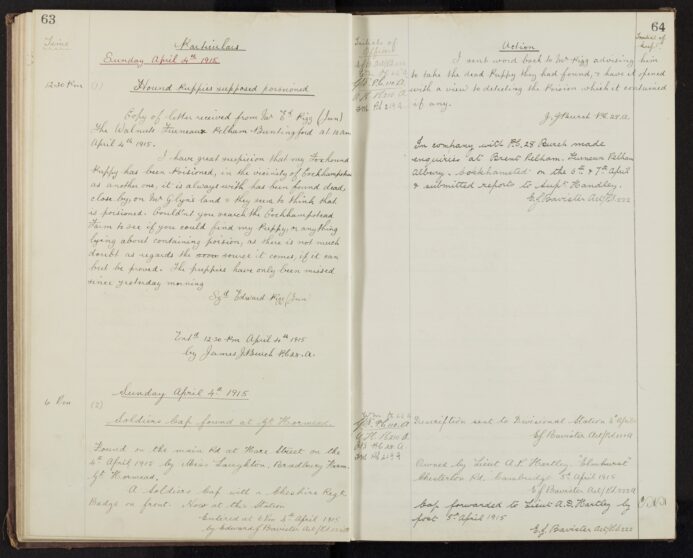 63
Time
Particulars
Sunday April 4th 1915
12.30 Pm (1) Hound Puppies supposed poisoned
Copy of letter received from Mr Ed Rigg (Jun)
The Walnuts Furneaux Pelham Buntingford at 12 am
April 4th 1915.
I have great suspicion that my Foxhound
Puppy has been Poisioned, in the vicinity of Cockhampstead
as another one, it is always with has been found dead,
close by, on Mr Glyns land & they seem to think that
is poisioned. Could'nt you search the Cockhampstead
Farm to see if you could find my Puppy, or anything
lying about containing poision, as there is not much
doubt as regards the sourse it comes, if it can
but be proved. The puppies have only been missed
since yesterday morning
Sgd Edward Rigg (Jun)
Entd 12.30 Pm April 4th 1915
by James J Burch Pc 28. A.
Sunday April 4th 1915
6 Pm (2)
Soldiers Cap found at Gt Hormead.
Found on the main Rd at Hare Street on the
4th April 1915 by Miss Laughton, Bradbury Farm
Gt Hormead.
A Soldiers Cap with a Cheshire Regt
Badge on front. Now at this Station
Entered at 6 Pm 4th April 1915
by Edward J Banister Act/Pc 222A
64
Initials of
Officers
Action
Initials of
Supt.
I sent word back to Mr Rigg advising him
to take the dead Puppy they had found, & have it opened
with a view to detecting the Poision which it contained
if any.
J. J Burch Pc 28. A.
In company with P.C. 28 Burch made
enquiries at Brent Pelham, Furneux Pelham
Albury, Cockhamsted on the 5th & 7th April
& submitted reports to Supt Handley.
E J Banister Act/Pc 222
Description sent to Divisional Station 5th April
E J Banister Act/Pc 222A
Owned by Lieut A. P. Hartley, "Elmhurst"
Chesterton Rd, Cambridge 5th April 1915
E J Banister Act/Pc 222A
Cap forwarded to Lieut A. P. Hartley by
post 5th April 1915
E J Banister Act/Pc 222